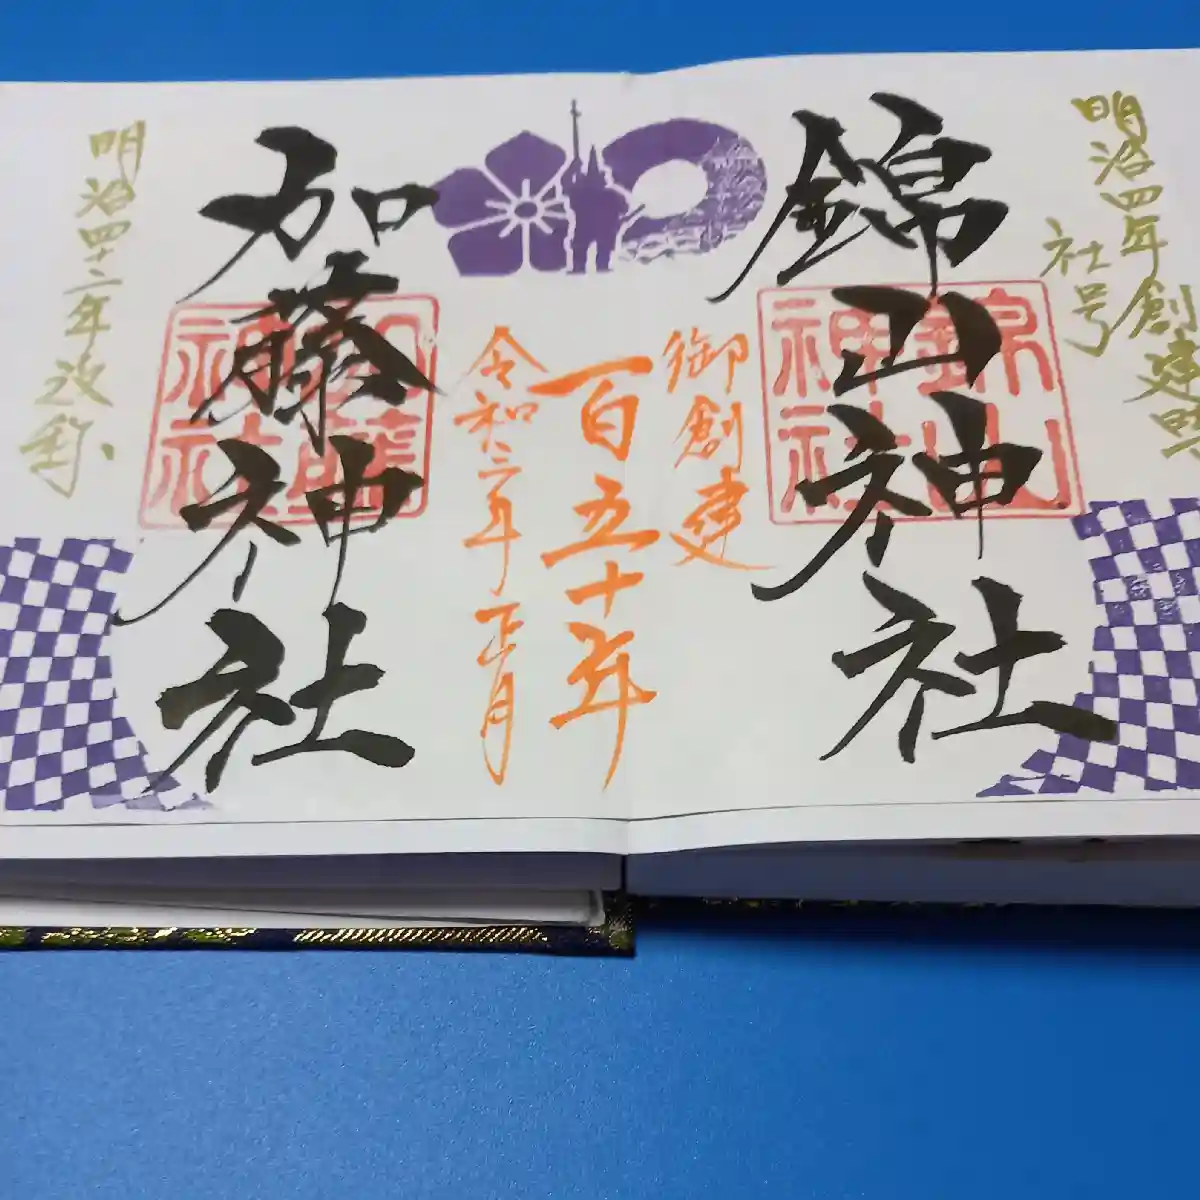 明治四年創建時
社号
錦山神社
錦山神社
御創建
百五十年
令和三年正月
加藤神社
加藤神社
明治四十二年改称